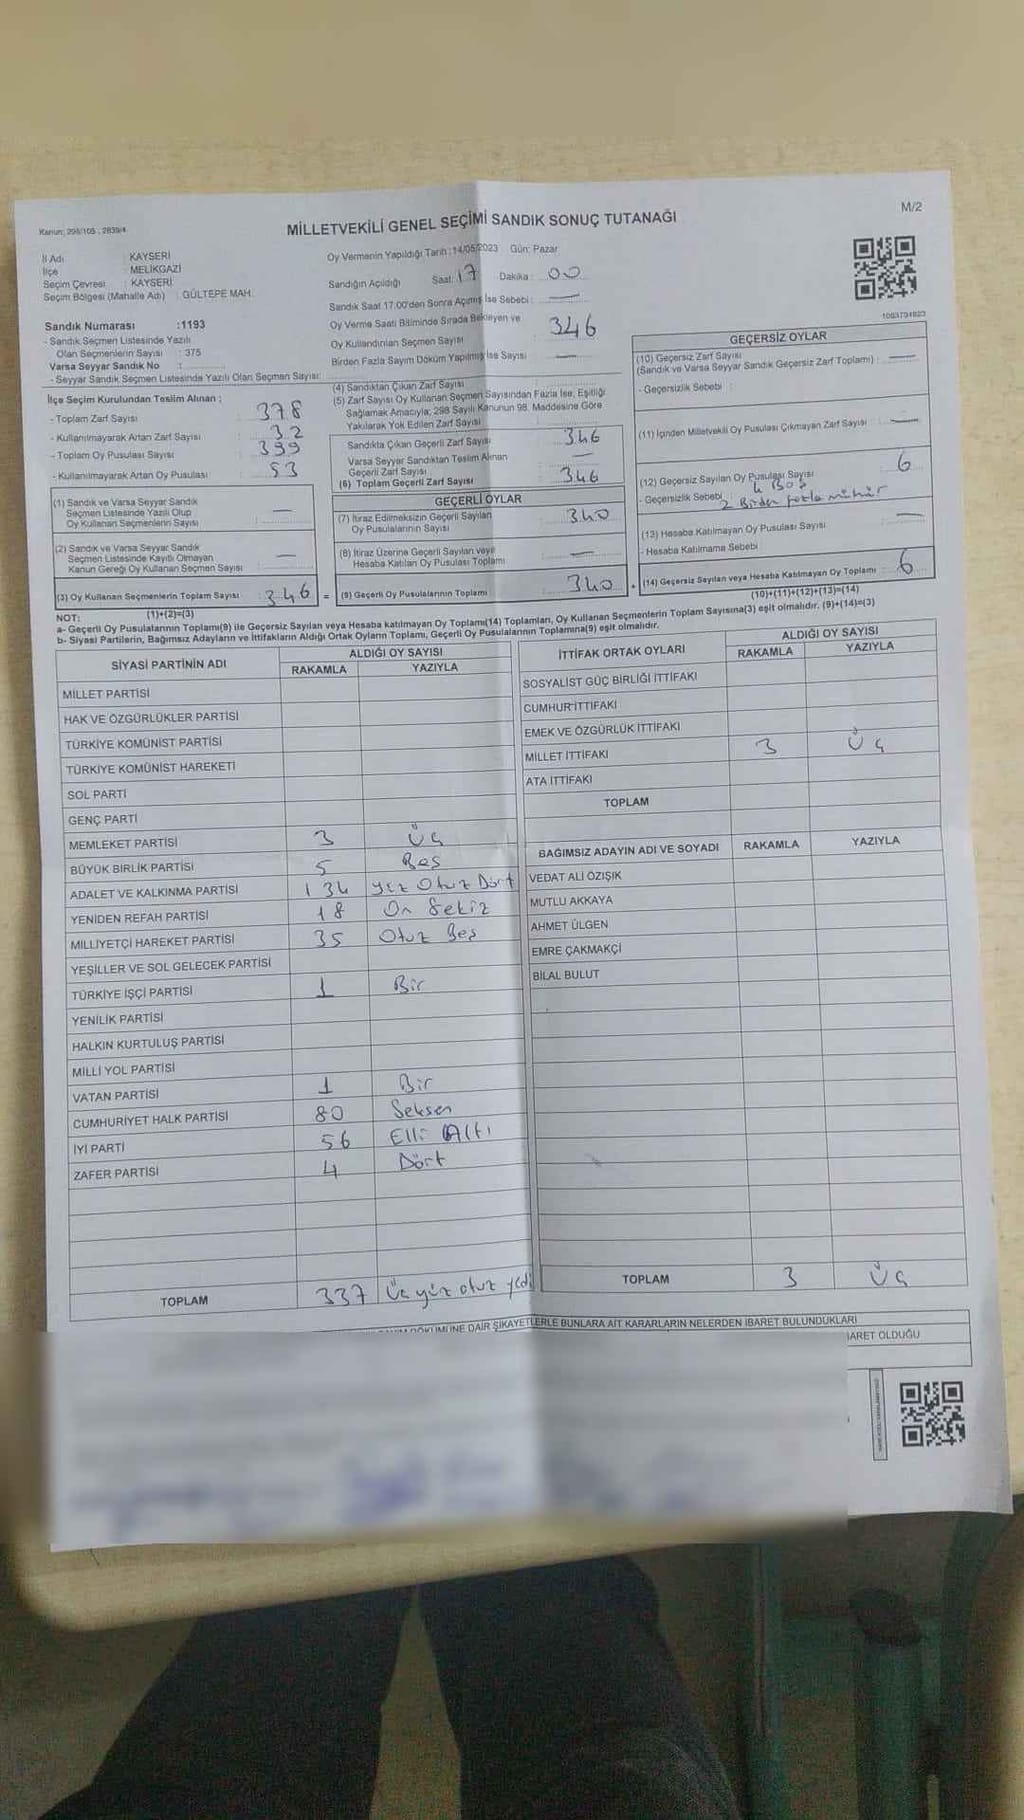 Kanun: 298/105 ; 2839/4
M/2
MİLLETVEKİLİ GENEL SEÇİMİ SANDIK SONUÇ TUTANAĞI
İl Adı : KAYSERİ
İlçe : MELİKGAZİ
Seçim Çevresi : KAYSERİ
Seçim Bölgesi (Mahalle Adı) : GÜLTEPE MAH.
Sandık Numarası :1193
- Sandık Seçmen Listesinde Yazılı
Olan Seçmenlerin Sayısı : 375
Varsa Seyyar Sandık No :
- Seyyar Sandık Seçmen Listesinde Yazılı Olan Seçmen Sayısı:
İlçe Seçim Kurulundan Teslim Alınan ;
- Toplam Zarf Sayısı : 378
- Kullanılmayarak Artan Zarf Sayısı : 32
- Toplam Oy Pusulası Sayısı : 399
- Kullanılmayarak Artan Oy Pusulası : 53
(1) Sandık ve Varsa Seyyar Sandık
Seçmen Listesinde Yazılı Olup
Oy Kullanan Seçmenlerin Sayısı : —
(2) Sandık ve Varsa Seyyar Sandık
Seçmen Listesinde Kayıtlı Olmayan
Kanun Gereği Oy Kullanan Seçmen Sayısı : —
(3) Oy Kullanan Seçmenlerin Toplam Sayısı : 346 =
(1)+(2)=(3)
Oy Vermenin Yapıldığı Tarih :14/05/2023 Gün: Pazar
Sandığın Açıldığı Saat: 17 Dakika : 00
Sandık Saat 17.00'den Sonra Açılmış İse Sebebi : —
Oy Verme Saati Bitiminde Sırada Bekleyen ve
Oy Kullandırılan Seçmen Sayısı : 346
Birden Fazla Sayım Döküm Yapılmış İse Sayısı : —
(4) Sandıktan Çıkan Zarf Sayısı :
(5) Zarf Sayısı Oy Kullanan Seçmen Sayısından Fazla İse, Eşitliği
Sağlamak Amacıyla; 298 Sayılı Kanunun 98. Maddesine Göre
Yakılarak Yok Edilen Zarf Sayısı :
Sandıkta Çıkan Geçerli Zarf Sayısı : 346
Varsa Seyyar Sandıktan Teslim Alınan
Geçerli Zarf Sayısı : —
(6) Toplam Geçerli Zarf Sayısı : 346
GEÇERLİ OYLAR
(7) İtiraz Edilmeksizin Geçerli Sayılan
Oy Pusulalarının Sayısı : 340
(8) İtiraz Üzerine Geçerli Sayılan veya
Hesaba Katılan Oy Pusulası Toplamı : —
(9) Geçerli Oy Pusulalarının Toplamı : 340 +
1093794823
GEÇERSİZ OYLAR
(10) Geçersiz Zarf Sayısı
(Sandık ve Varsa Seyyar Sandık Geçersiz Zarf Toplamı) : —
- Geçersizlik Sebebi :
(11) İçinden Milletvekili Oy Pusulası Çıkmayan Zarf Sayısı : —
(12) Geçersiz Sayılan Oy Pusulası Sayısı : 6
- Geçersizlik Sebebi 4 Boş
2 Birden fazla mühür
(13) Hesaba Katılmayan Oy Pusulası Sayısı : —
- Hesaba Katılmama Sebebi
(14) Geçersiz Sayılan veya Hesaba Katılmayan Oy Toplamı : 6
(10)+(11)+(12)+(13)=(14)
NOT:
a- Geçerli Oy Pusulalarının Toplamı(9) ile Geçersiz Sayılan veya Hesaba katılmayan Oy Toplamı(14) Toplamları, Oy Kullanan Seçmenlerin Toplam Sayısına(3) eşit olmalıdır. (9)+(14)=(3)
b- Siyasi Partilerin, Bağımsız Adayların ve İttifakların Aldığı Ortak Oyların Toplamı, Geçerli Oy Pusulalarının Toplamına(9) eşit olmalıdır.
SİYASİ PARTİNİN ADI ALDIĞI OY SAYISI
RAKAMLA YAZIYLA
MİLLET PARTİSİ
HAK VE ÖZGÜRLÜKLER PARTİSİ
TÜRKİYE KOMÜNİST PARTİSİ
TÜRKİYE KOMÜNİST HAREKETİ
SOL PARTİ
GENÇ PARTİ
MEMLEKET PARTİSİ 3 Üç
BÜYÜK BİRLİK PARTİSİ 5 Beş
ADALET VE KALKINMA PARTİSİ 134 yüz Otuz Dört
YENİDEN REFAH PARTİSİ 18 On Sekiz
MİLLİYETÇİ HAREKET PARTİSİ 35 Otuz Beş
YEŞİLLER VE SOL GELECEK PARTİSİ
TÜRKİYE İŞÇİ PARTİSİ 1 Bir
YENİLİK PARTİSİ
HALKIN KURTULUŞ PARTİSİ
MİLLİ YOL PARTİSİ
VATAN PARTİSİ 1 Bir
CUMHURİYET HALK PARTİSİ 80 Seksen
İYİ PARTİ 56 Elli Altı
ZAFER PARTİSİ 4 Dört
TOPLAM 337 Üçyüz otuz yedi
İTTİFAK ORTAK OYLARI ALDIĞI OY SAYISI
RAKAMLA YAZIYLA
SOSYALİST GÜÇ BİRLİĞİ İTTİFAKI
CUMHUR İTTİFAKI
EMEK VE ÖZGÜRLÜK İTTİFAKI
MİLLET İTTİFAKI 3 Üç
ATA İTTİFAKI
TOPLAM
BAĞIMSIZ ADAYIN ADI VE SOYADI RAKAMLA YAZIYLA
VEDAT ALİ ÖZIŞIK
MUTLU AKKAYA
AHMET ÜLGEN
EMRE ÇAKMAKÇİ
BİLAL BULUT
TOPLAM 3 Üç
DÖKÜMÜNE DAİR ŞİKAYETLERLE BUNLARA AİT KARARLARIN NELERDEN İBARET BULUNDUKLARI
İBARET OLDUĞU